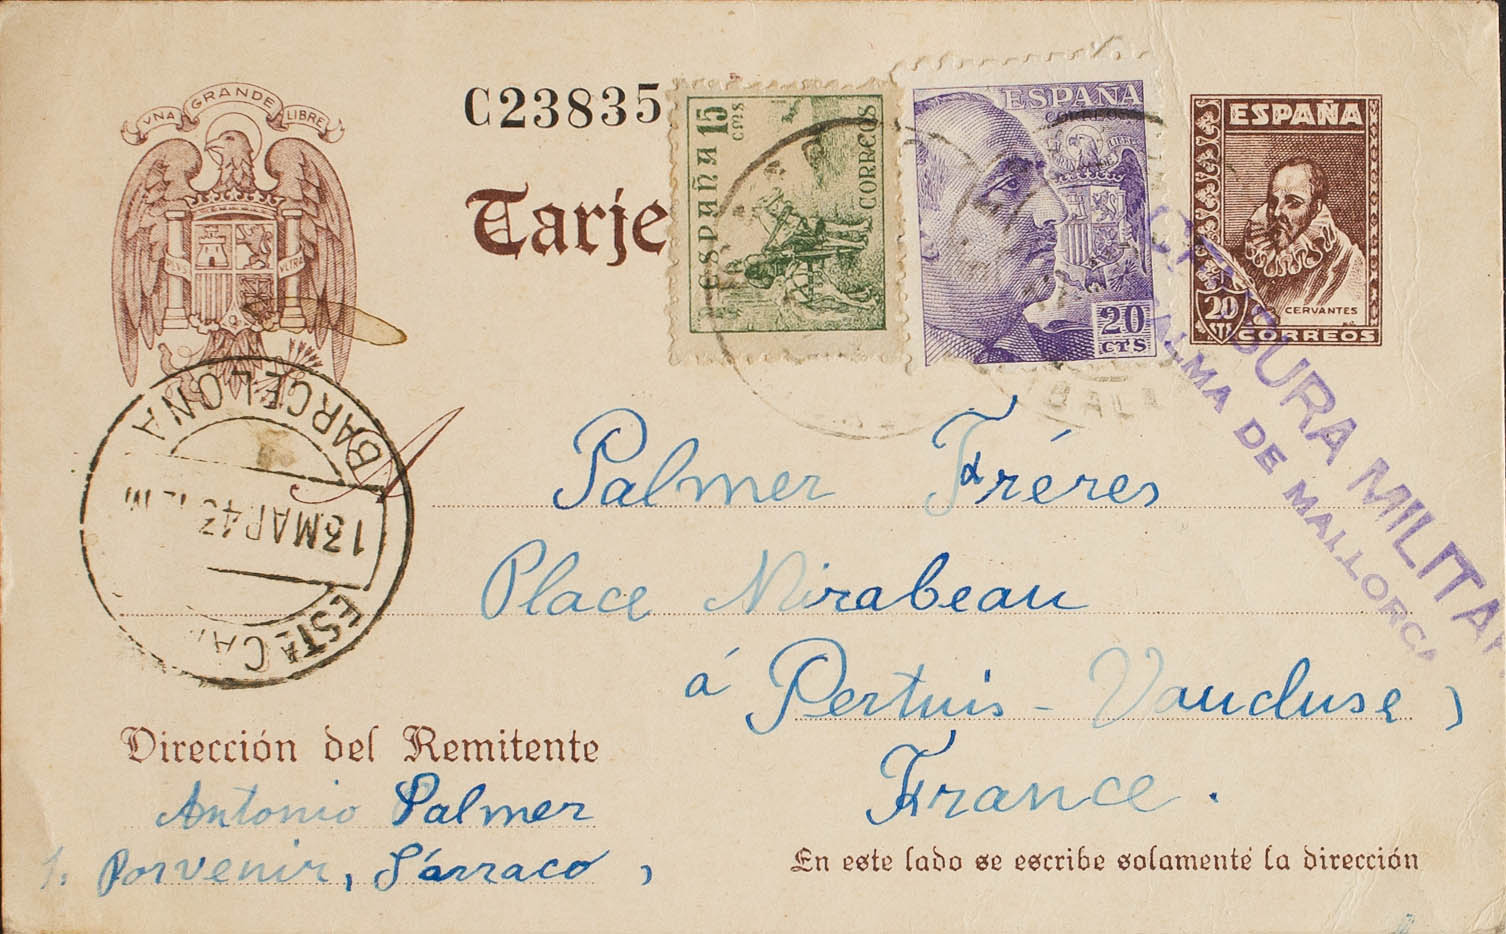 UNA GRANDE LIBRE
PLUS ULTRA
C23835
Tarje
ESPAÑA 15 CMS
CORREOS
ESPAÑA
CORREOS
20
CTS
ESPAÑA
CERVANTES
20
CTS
CORREOS
CENSURA MILITAR
PALMA DE MALLORCA
BARCELONA
13 MAR 43
EST.ª CA
Palmer Fréres
Place Mirabeau
á Pertuis - Vaucluse,
France.
Dirección del Remitente
Antonio Palmer
1. Porvenir, S'árraco,
En este lado se escribe solamente la dirección